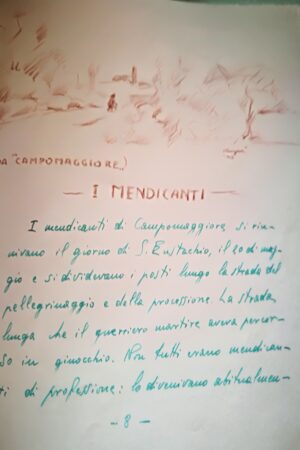 DA "CAMPOMAGGIORE")
— I MENDICANTI —
I mendicanti di Campomaggiore si riu-
nivano il giorno di S. Eustachio, il 20 di mag-
gio e si dividevano i posti lungo la strada del
pellegrinaggio e della processione. La strada
lunga che il guerriero martire aveva percor-
so in ginocchio. Non tutti erano mendican-
ti di professione: lo divenivano abitualmen-
- 8 -